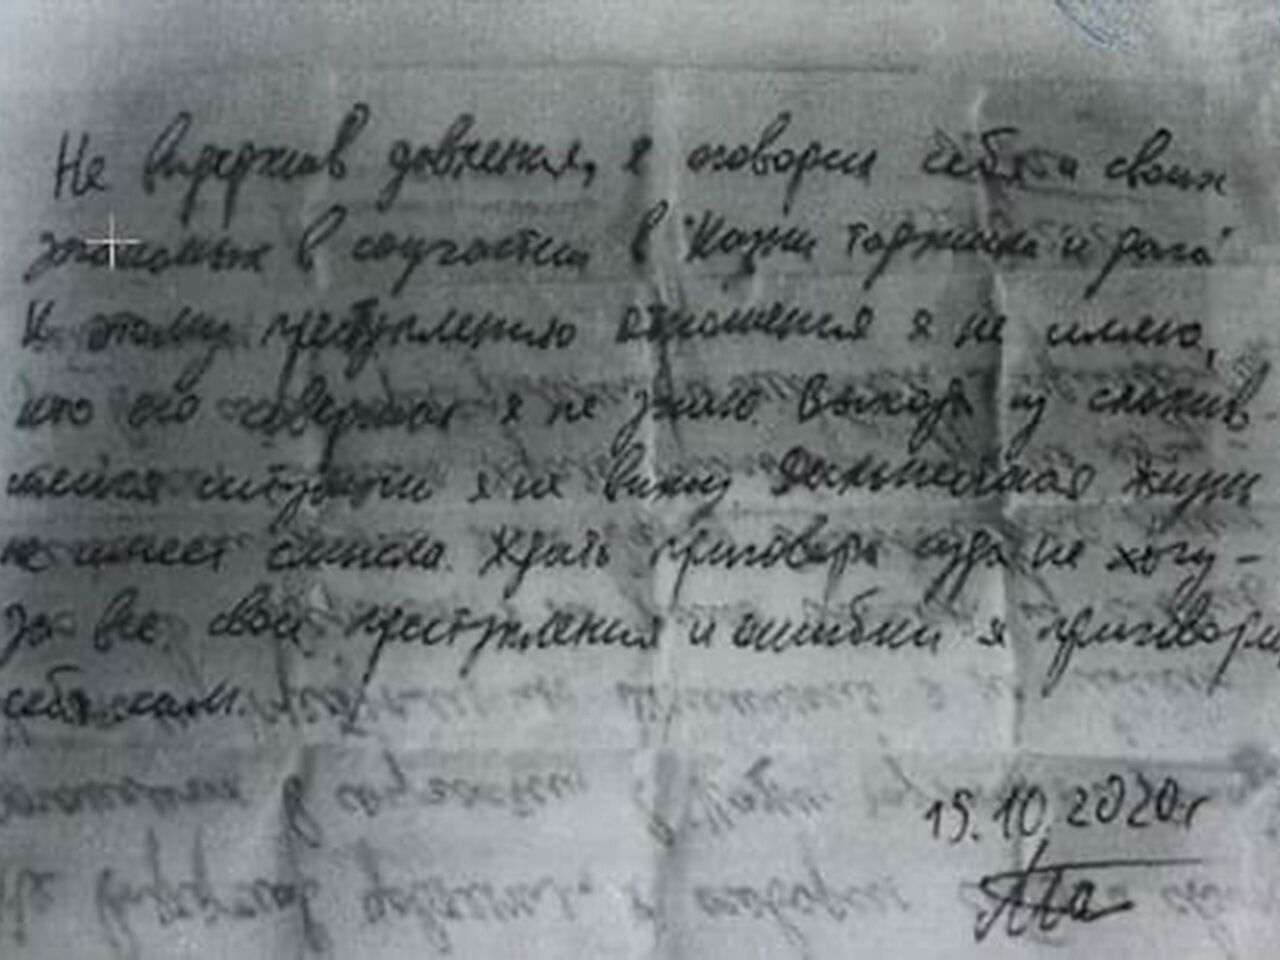 Не выдержав давления, я оговорил себя и своих
знакомых в соучастии в "Казни таджика и дага"
К этому преступлению отношения я не имею,
кто его совершил я не знаю. Выхода из сложив-
шейся ситуации я не вижу. Дальнейшая жизнь
не имеет смысла. Ждать приговора суда не хочу -
за все свои преступления и ошибки я приговорил
себя сам.
15.10.2020г